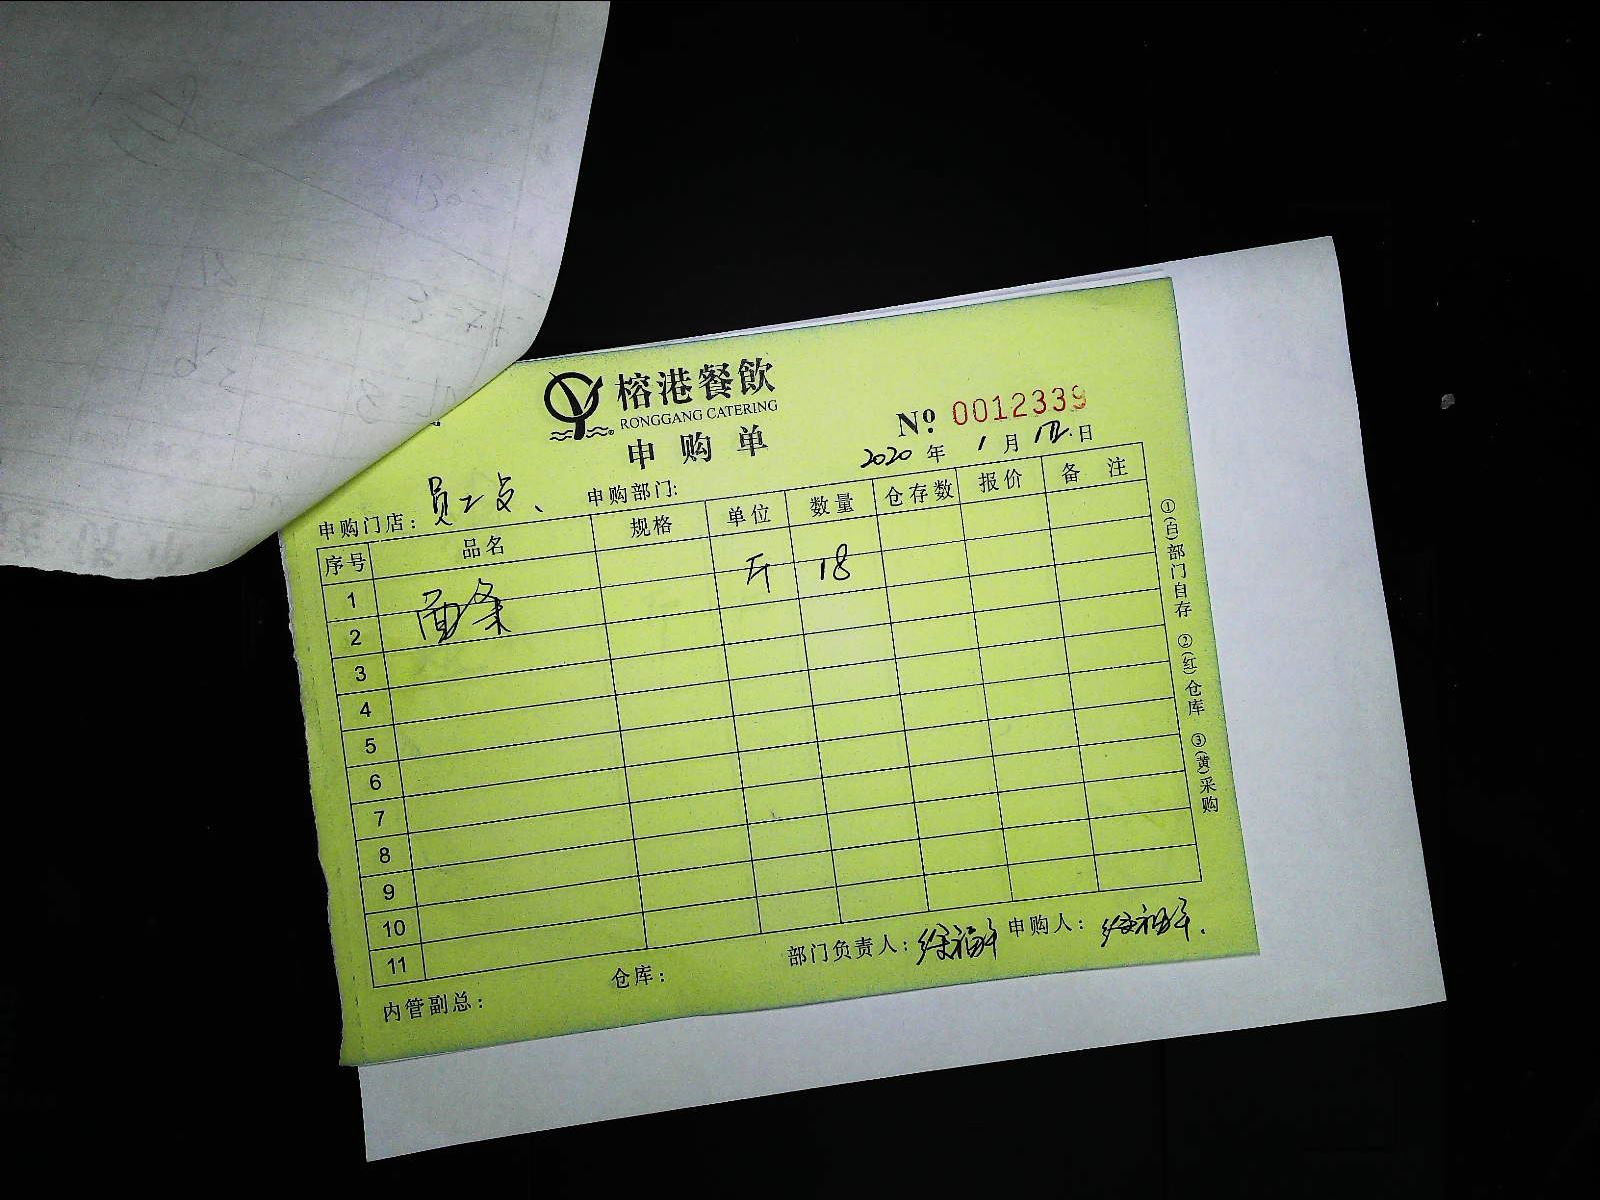 榕港餐飲
RONGGANG CATERING
申购单
№ 0012339
2020 年 1 月 日
申购门店：员工 申购部门:
序号 品名 规格 单位 数量 仓存数 报价 备注
1 面条 斤 18
2
3
4
5
6
7
8
9
10
11
内管副总： 仓库： 部门负责人：徐福 申购人：徐福
①(白)部门自存 ②(红)仓库 ③(黄)采购